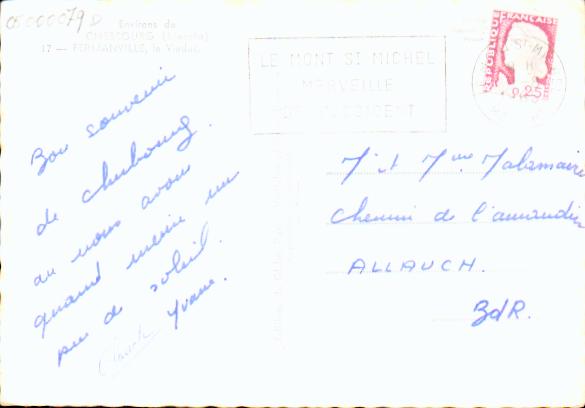 Environs de
CHERBOURG (Manche)
17 — FERMANVILLE, le Viaduc
LE MONT ST MICHEL
MERVEILLE
DE L'OCCIDENT
REPUBLIQUE FRANÇAISE
0,25
Bon souvenir
de Cherbourg.
ou nous avons
quand même un
peu de soleil.
Yvane.
Mr et Mme Malamaire
Chemin de l'amandier
ALLAUCH.
BdR.